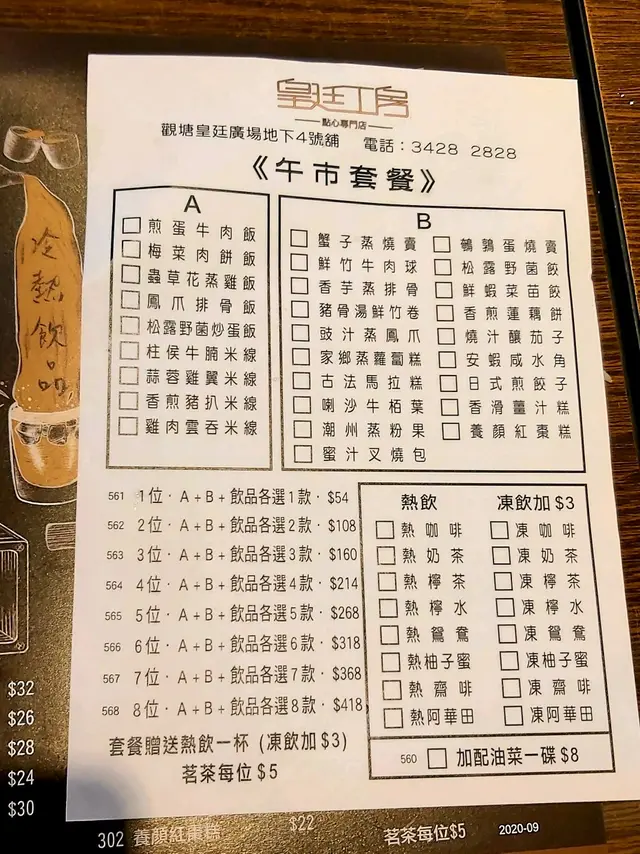 皇廷工房
點心專門店
觀塘皇廷廣場地下4號舖 電話：3428 2828
《午市套餐》
A
煎蛋牛肉飯
梅菜肉餅飯
蟲草花蒸雞飯
鳳爪排骨飯
松露野菌炒蛋飯
柱侯牛腩米線
蒜蓉雞翼米線
香煎豬扒米線
雞肉雲吞米線
B
蟹子蒸燒賣
鮮竹牛肉球
香芋蒸排骨
豬骨湯鮮竹卷
豉汁蒸鳳爪
家鄉蒸蘿蔔糕
古法馬拉糕
喇沙牛栢葉
潮州蒸粉果
蜜汁叉燒包
鵪鶉蛋燒賣
松露野菌餃
鮮蝦菜苗餃
香煎蓮藕餅
燒汁釀茄子
安蝦咸水角
日式煎餃子
香滑薑汁糕
養顏紅棗糕
561 1位· A+B+飲品各選1款· $54
562 2位· A+B+飲品各選2款· $108
563 3位· A+B+飲品各選3款· $160
564 4位· A+B+飲品各選4款· $214
565 5位· A+B+飲品各選5款· $268
566 6位· A+B+飲品各選6款· $318
567 7位· A+B+飲品各選7款· $368
568 8位· A+B+飲品各選8款· $418
套餐贈送熱飲一杯 (凍飲加$3)
茗茶每位$5
熱飲
熱咖啡
熱奶茶
熱檸茶
熱檸水
熱鴛鴦
熱柚子蜜
熱齋啡
熱阿華田
凍飲加$3
凍咖啡
凍奶茶
凍檸茶
凍檸水
凍鴛鴦
凍柚子蜜
凍齋啡
凍阿華田
560 加配油菜一碟$8
冷熱飲品
$32
$26
$28
$24
$30
302 養顏紅棗糕 $22
茗茶每位$5
2020-09